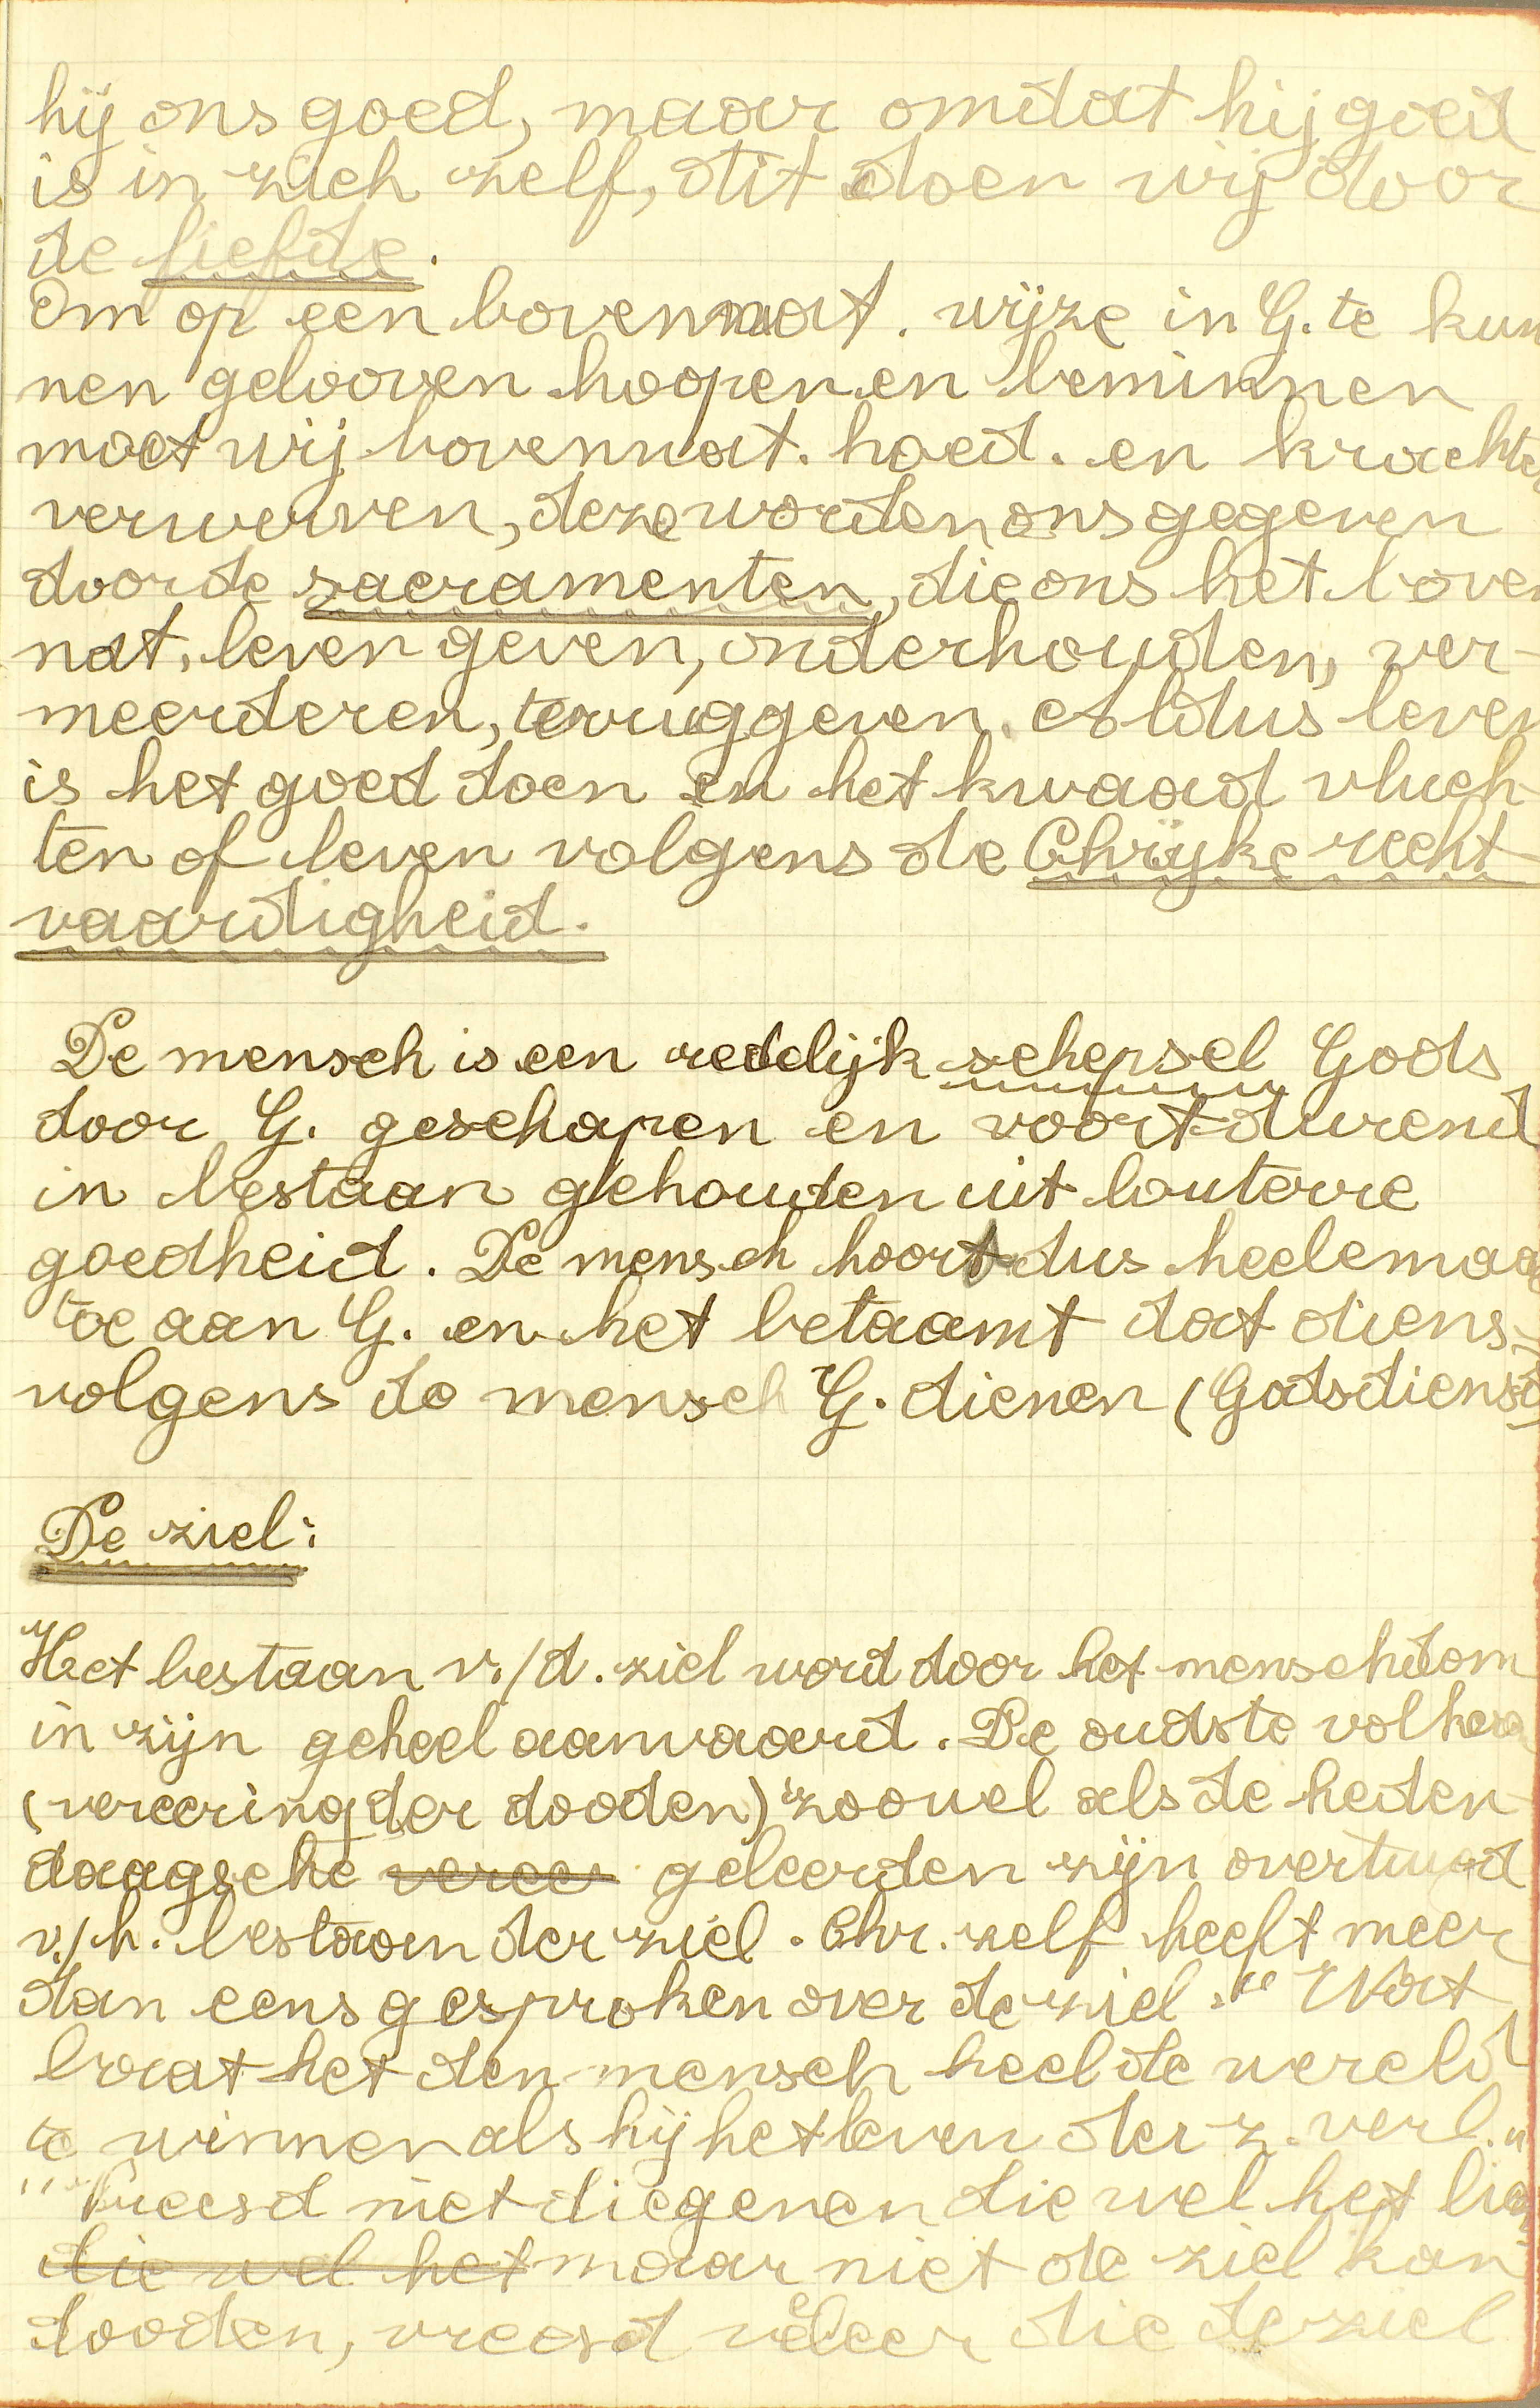 hij ons goed, maar omdat hij goed
is in zich zelf, dit doen wij door
de liefde.
Om op een bovennat. wijze in G. te kun
nen gelooven hoopen en beminnen
moet wij bovennat. hoed. en krachten
verwerven, deze worden ons gegeven
door de sacramenten, die ons het boven
nat. leven geven, onderhouden, ver-
meerderen, teruggeven. Aldus leven
is het goed doen en het kwaad vluch-
ten of leven volgens de Chrijke recht
vaardigheid.
De mensch is een redelijk schepsel Gods
door G. geschapen en voortdurend
in bestaan gehouden uit louterre
goedheid. De mensch hoort dus heelemaa
toe aan G. en het betaamt dat diens-
volgens de mensch G. dienen (Godsdienst
De ziel:
Het bestaan v./d. ziel word door het menschdom
in zijn geheel aanvaard. De oudste volkere
(vereering der dooden) zoowel als de heden-
daagsche veree geleerden zijn overtuigd
v./h. bestaan der ziel. Chr. zelf heeft meer
dan eens gesproken over de ziel. "Wat
baat het den mensch heel de wereld
te winnen als hij het leven der z. verl."
"Vreesd niet diegenen die wel het lich
die wel het maar niet de ziel kan
dooden, vreesd eer die de ziel